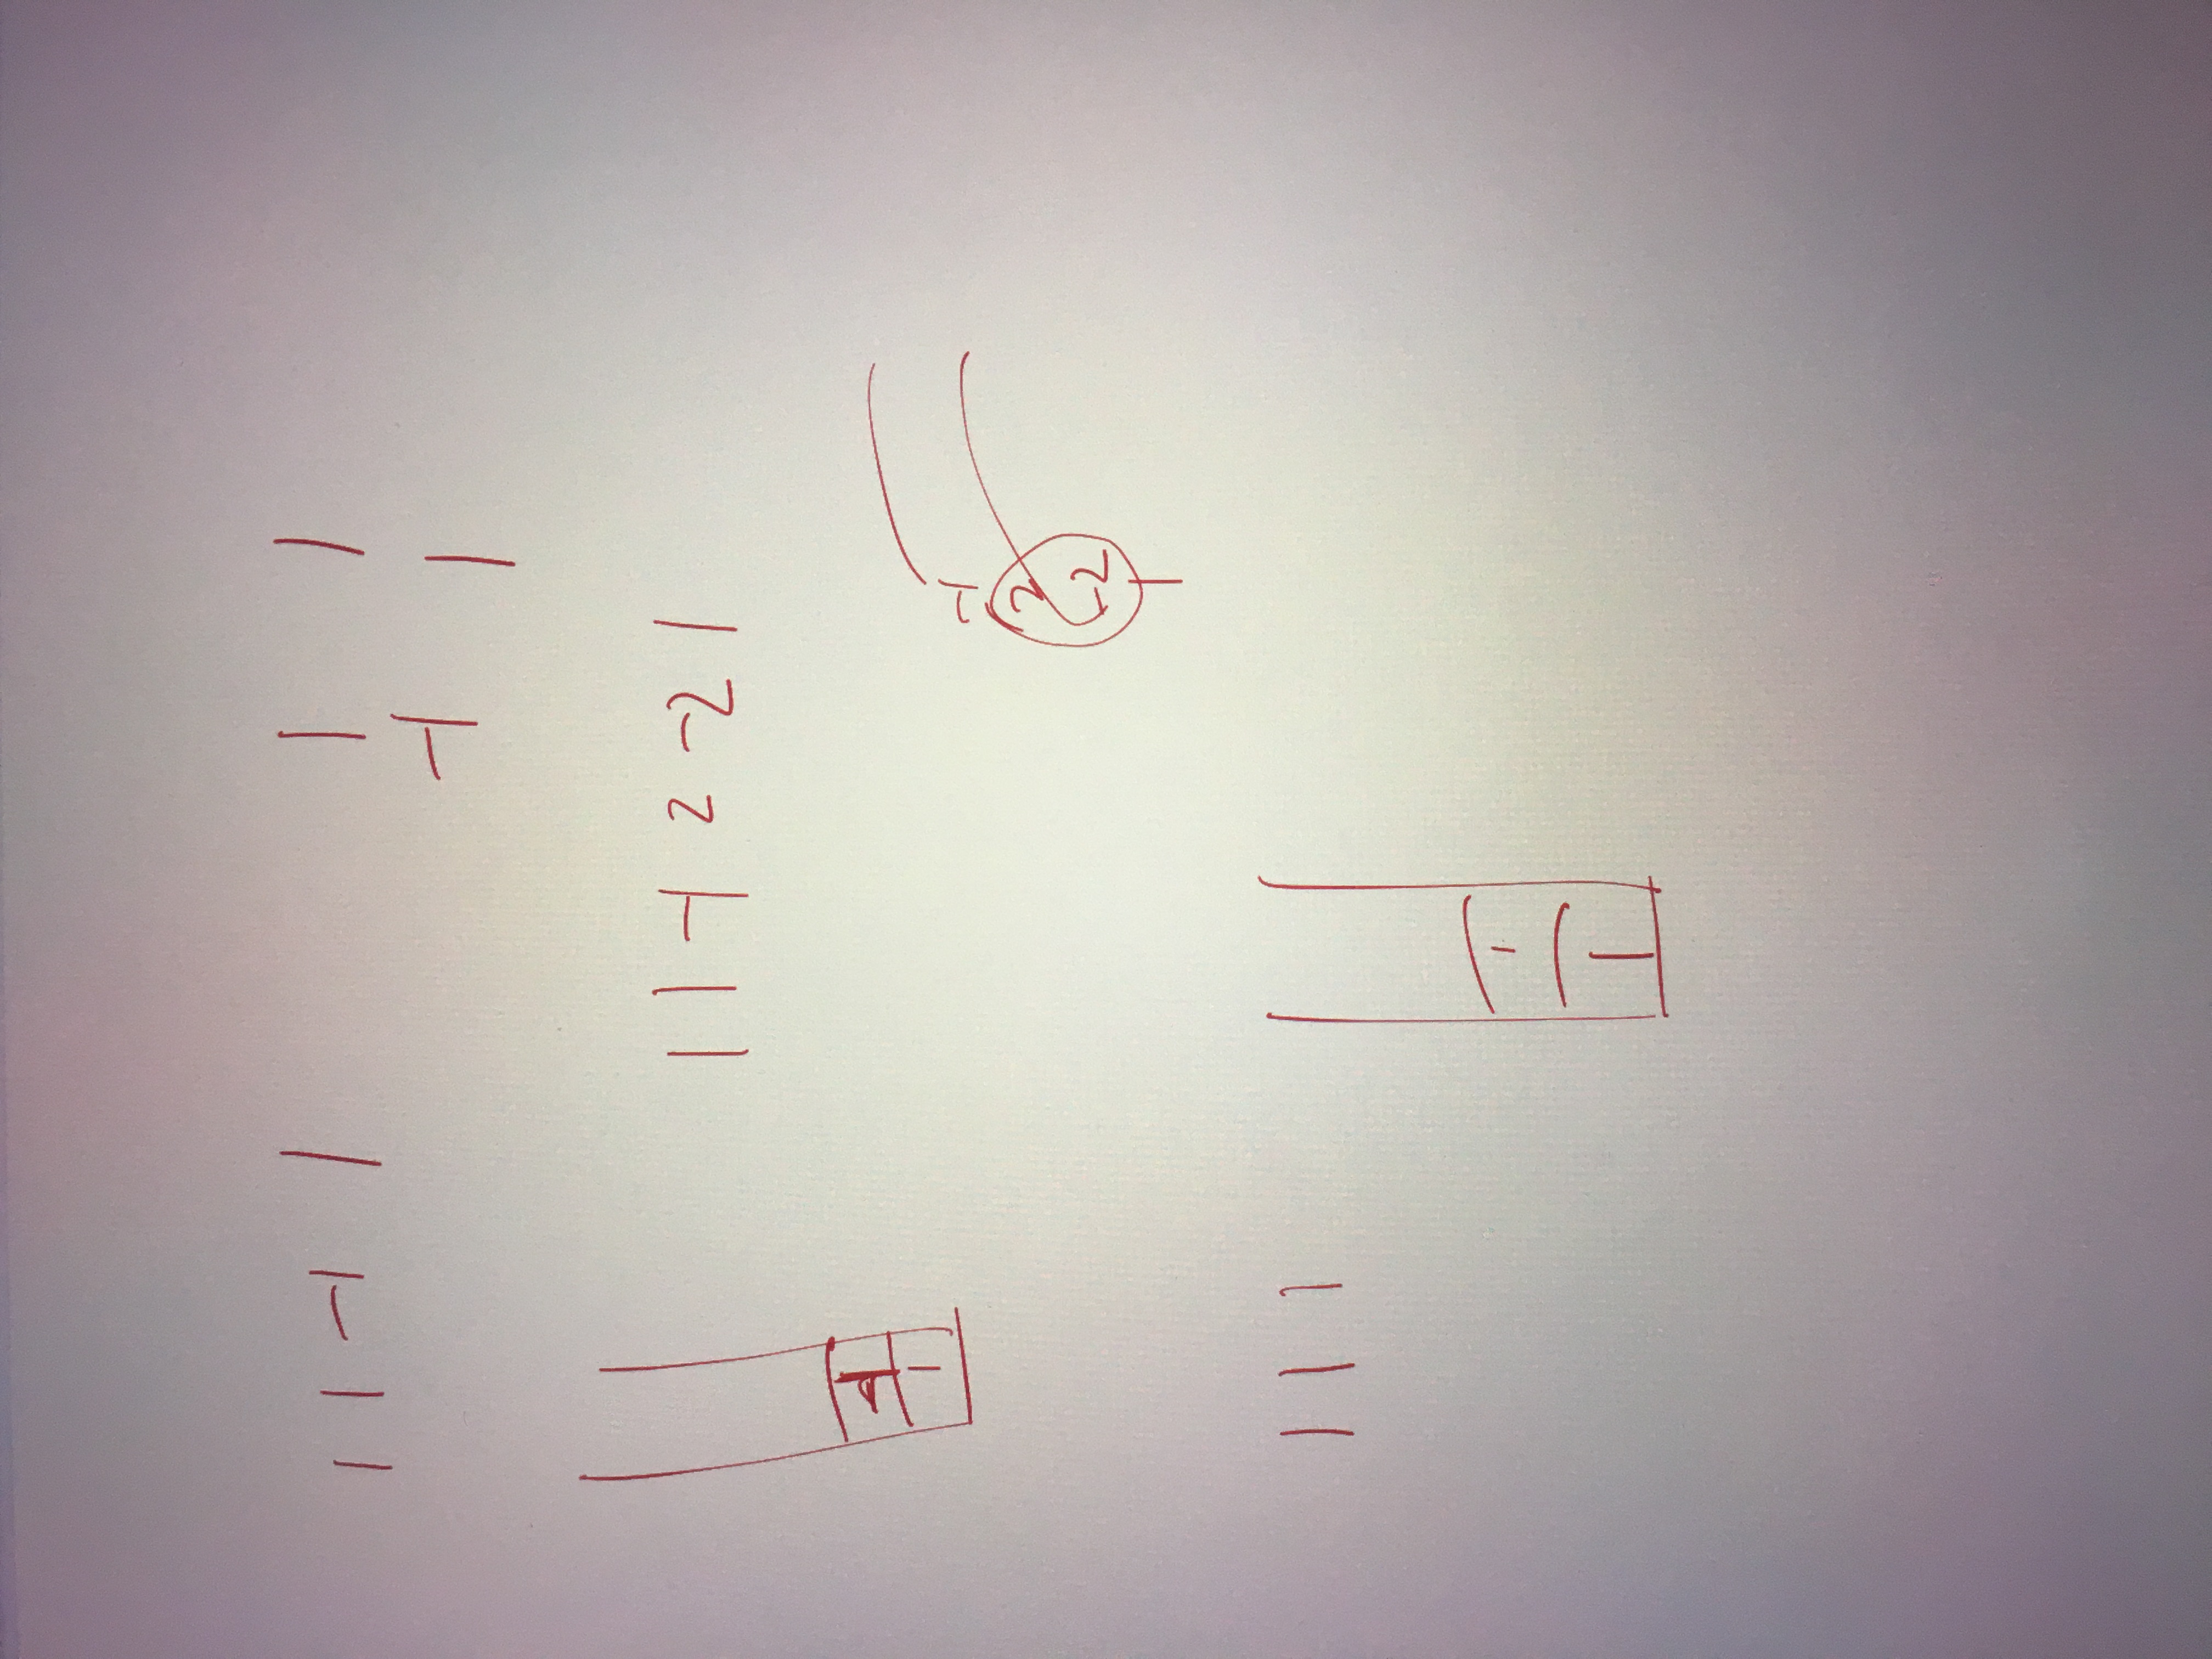 1 1 -1 1
1 1
-1 1
1 1 -1 2 -2 1
1
-1
2
-2
1
1 1 1
1
1